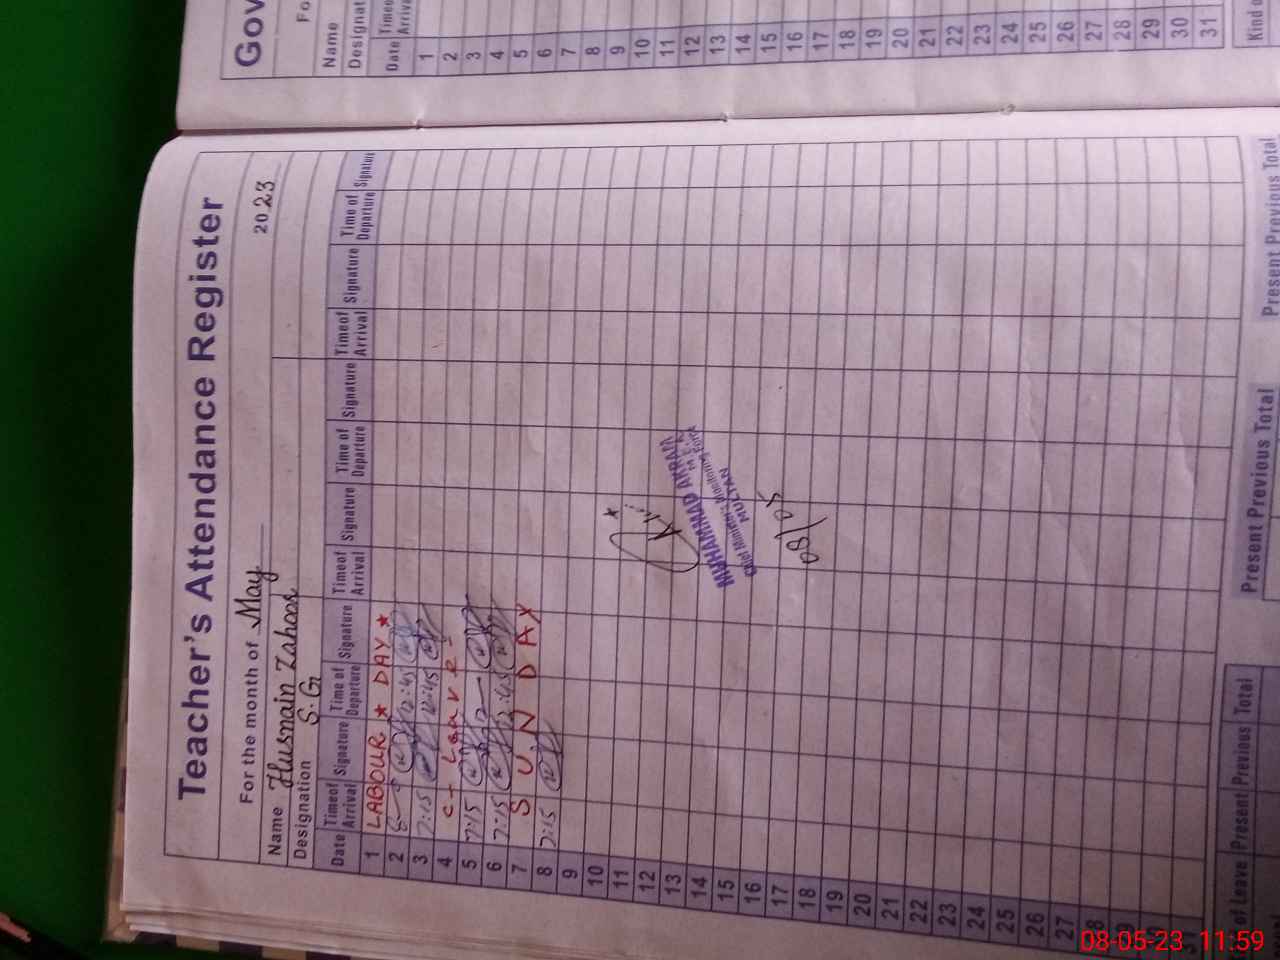 Teacher's Attendance Register
For the month of May 2023
Name Husnain Zahoor
Designation S.G
Date Timeof Arrival Signature Time of Departure Signature Timeof Arrival Signature Time of Departure Signature Timeof Arrival Signature Time of Departure Signature
1 LABOUR ★ DAY ★
2 12:45
3 7:15 12:45
4 C- Leave
5 7:15 12
6 7:15 12:45
7 SUNDAY
8 7:15
9
10
11
12
13
14
15
16
17
18
19
20
21
22
23
24
25
26
27
28
29
31
MUHAMMAD AKRAM
M.E.A
Chief Minister's Monitoring Force
MULTAN
08/05
of Leave Present Previous Total Present Previous Total Present Previous Total
Gov
Fo
Name
Designat
Date Timeo Arriva
1
2
3
4
5
6
7
8
9
10
11
12
13
14
15
16
17
18
19
20
21
22
23
24
25
26
27
28
29
30
31
Kind o
08-05-23 11:59